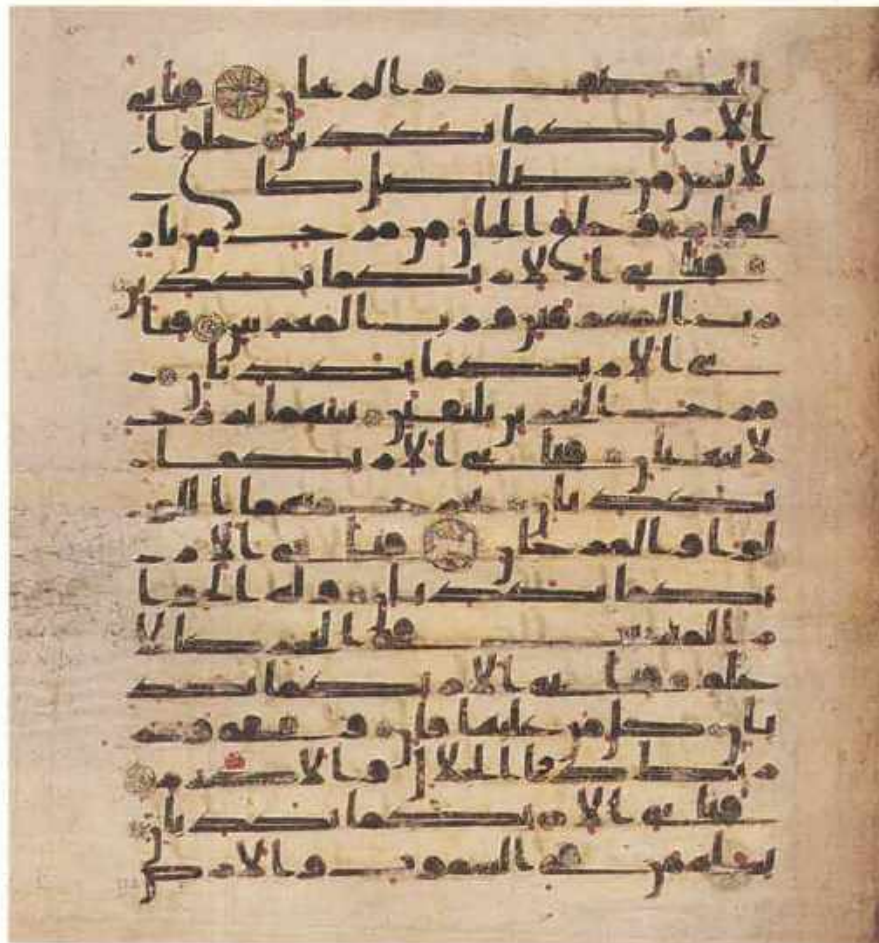 العصف والريحان فباي
الا ربكما تكذبن خلق ا
لانسن من صلصل كا
لفخار وخلق الجان من مرج من نار
فباي الا ربكما تكذبن
رب المشرقين ورب المغربين فبا
ي الا ربكما تكذبان
مرج البحرين يلتقين بينهما برزخ
لا يبغيان فباي الا ربكما
تكذبان يخرج منهما اللو
لوا والمرجان فباي الا ر
بكما تكذبان وله الجوا
ر المنشت في البحر كالا
علم فباي الا ربكما تكذ
بان كل من عليها فان ويبقى وجه
ربك ذو الجلل والاكرم
فباي الا ربكما تكذبان
يسله من في السموت والارض كل